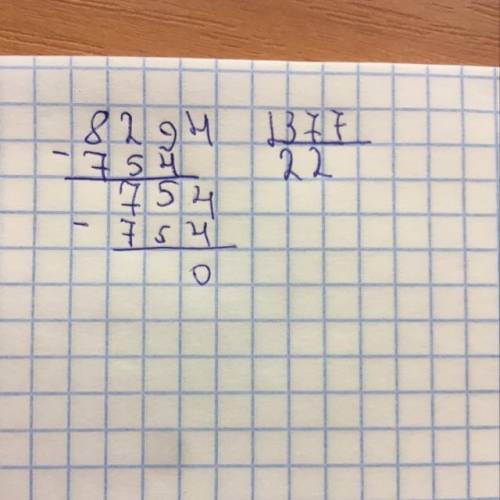 8294 |377
- 754 22
754
- 754
0